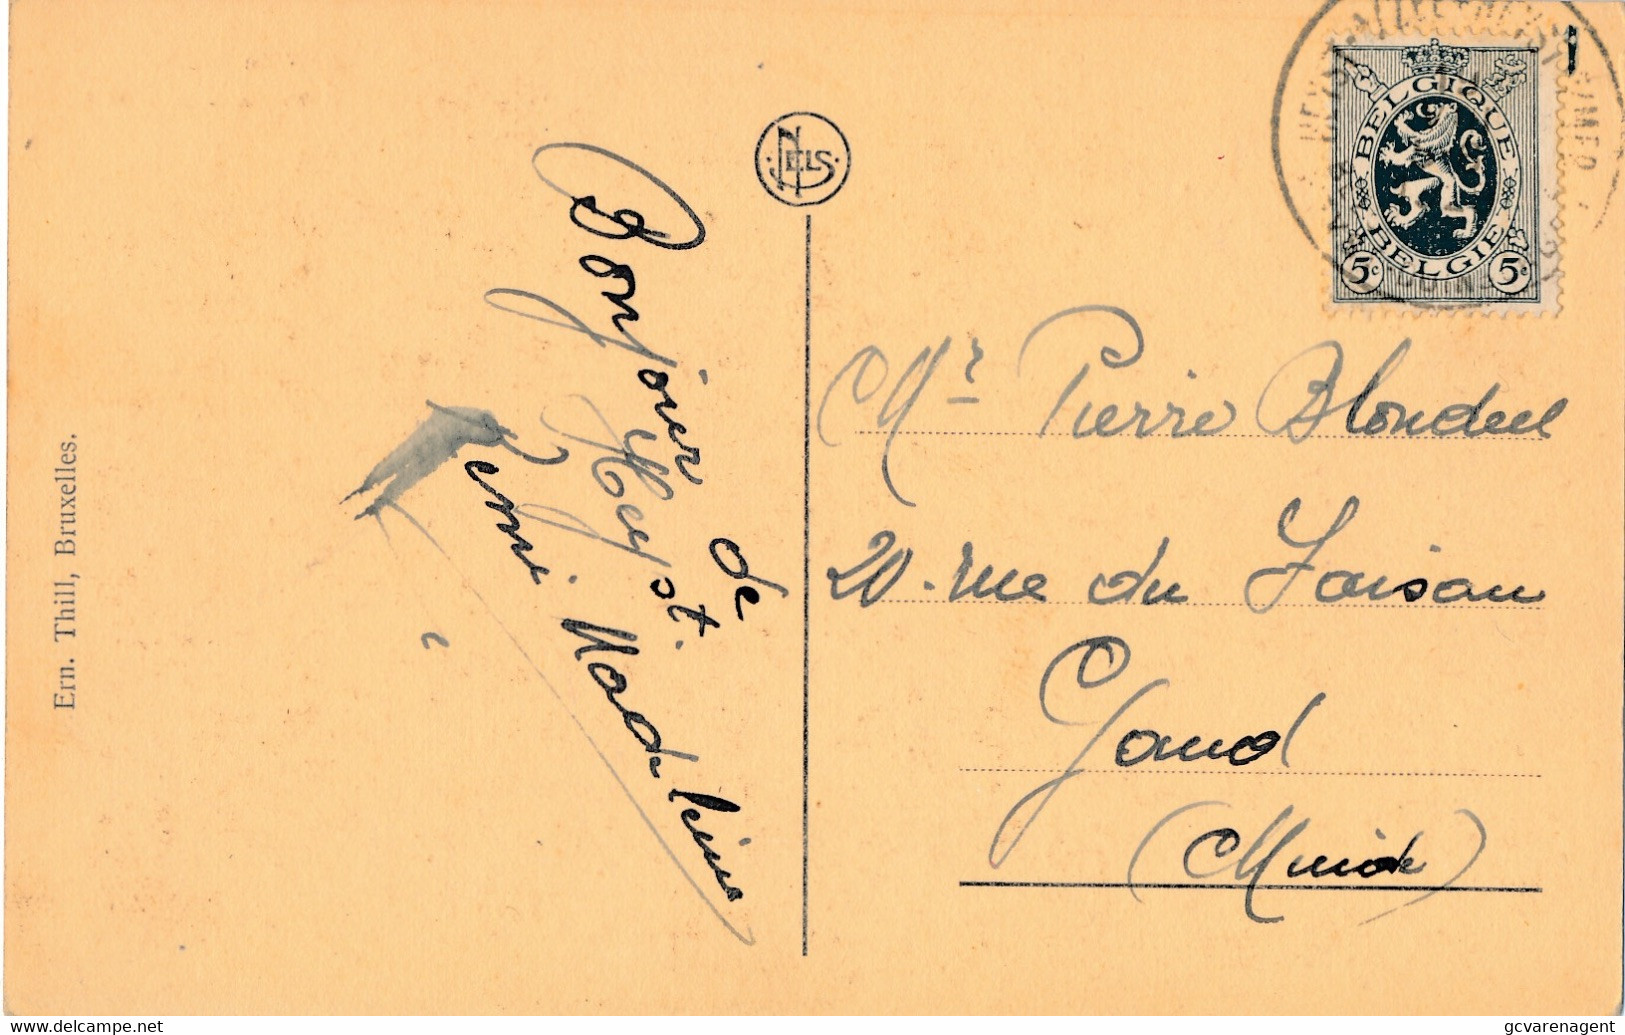 Ern. Thill, Bruxelles.
NELS
Bonjour
de
Heyst.
Madeleine
BELGIQUE
BELGIE
5c 5c
Mr Pierre Blondeel
20. rue du Faisan
Gand
(Muide)
delcampe.net
gcvarenagent